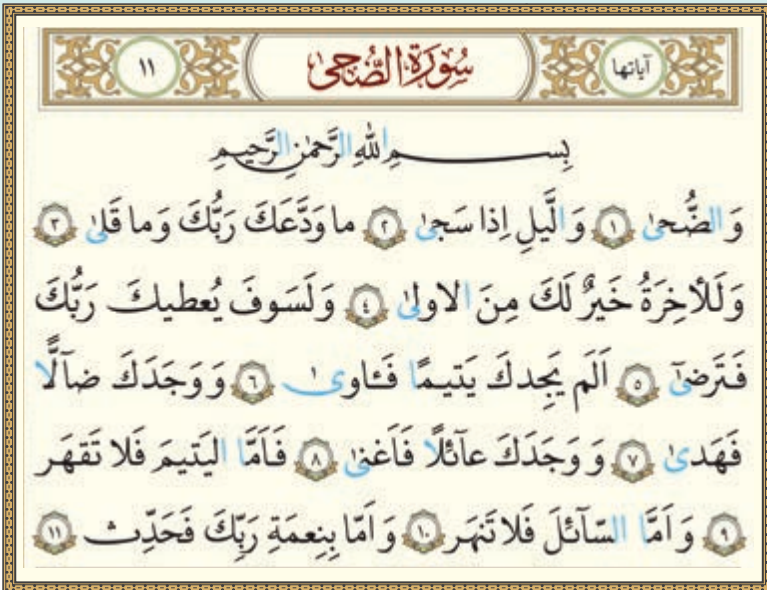 آیاتها سُورَةُ الضُّحىٰ ۱۱
بِسمِ اللّٰهِ الرَّحمٰنِ الرَّحیمِ
وَ الضُّحىٰ ۱ وَ الَّیلِ اِذا سَجىٰ ۲ ما وَدَّعَكَ رَبُّكَ وَ ما قَلىٰ ۳
وَ لَلأخِرَةُ خَیرٌ لَكَ مِنَ الاولىٰ ٤ وَ لَسَوفَ یُعطیكَ رَبُّكَ
فَتَرضىٰٓ ٥ اَلَم یَجِدكَ یَتیمًا فَـٔاوىٰ ٦ وَ وَجَدَكَ ضآلًّا
فَهَدىٰ ۷ وَ وَجَدَكَ عآئلًا فَاَغنىٰ ۸ فَاَمَّا الیَتیمَ فَلا تَقهَر
۹ وَ اَمَّا السّآئلَ فَلا تَنهَر ۱۰ وَ اَمّا بِنِعمَةِ رَبِّكَ فَحَدِّث ۱۱